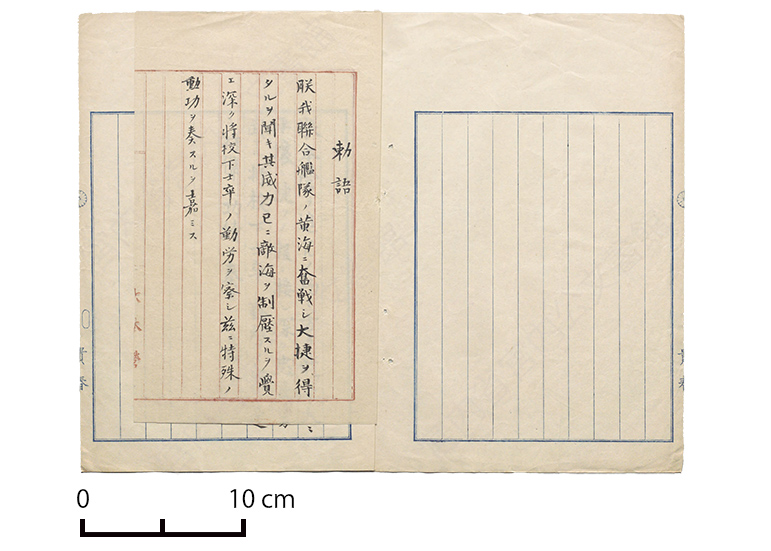 勅語
朕我聯合艦隊ノ黄海ニ奮戦シ大捷ヲ得
タルヲ聞キ其威力已ニ敵海ヲ制壓スルヲ覺
エ深ク将校下士卒ノ勤労ヲ察シ茲ニ特殊ノ
勳功ヲ奏スルヲ嘉ミス
貴
0 10 cm